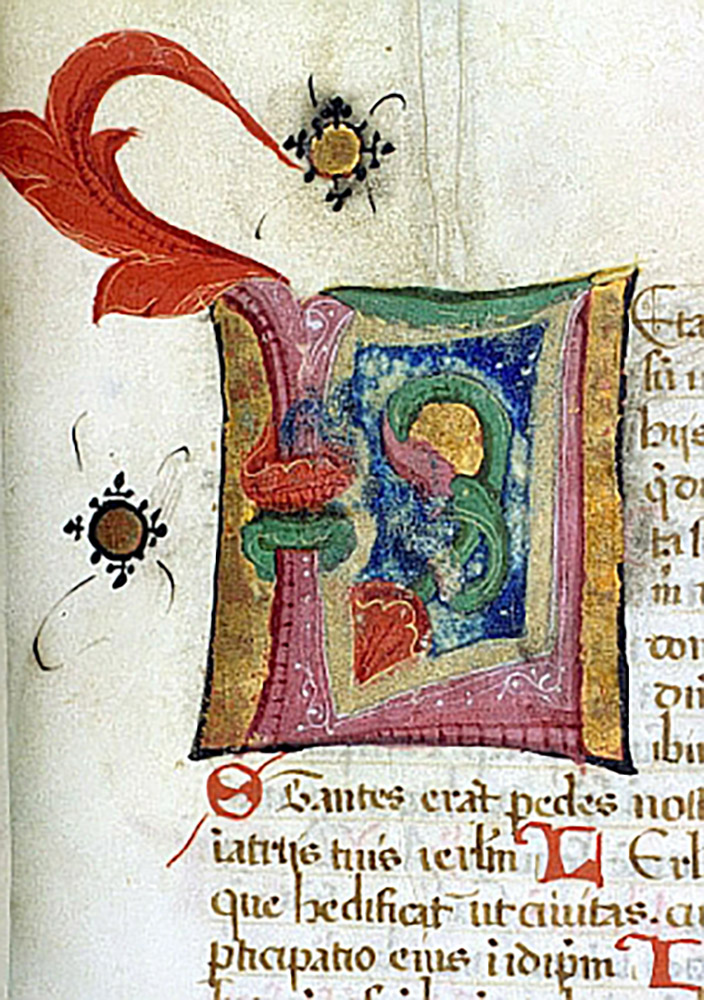 L Eta
sū
hijs
q̄ di
ta s
m̄
dom
dn̄
ibi
Stantes erāt pedes nost
iatrijs tuis ierlm̄ I Erl
que hedificat̄ ut ciuitas. cu
pticipatio eius īidip̄m I